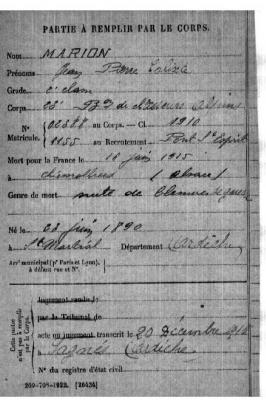 PARTIE À REMPLIR PAR LE CORPS.
Nom MARION
Prénoms Jean Pierre
Grade 2e classe
Corps 23e
N° 02388 au Corps. — Cl. 1910
Matricule. 1155 au Recrutement Pont St Esprit
Mort pour la France le 18 juin 1915
à
Genre de mort suite de blessures de guerre
Né le 23 juin 1890
à St Martial Département Ardèche
Arrt municipal (pr Paris et Lyon),
à défaut rue et N°.
Cette partie
n'est pas à remplir
par le Corps.
Jugement rendu le
par le Tribunal de
acte ou jugement transcrit le 20 Décembre
à Sagnes Ardèche
N° du registre d'état civil
269-708-1922. [26434]